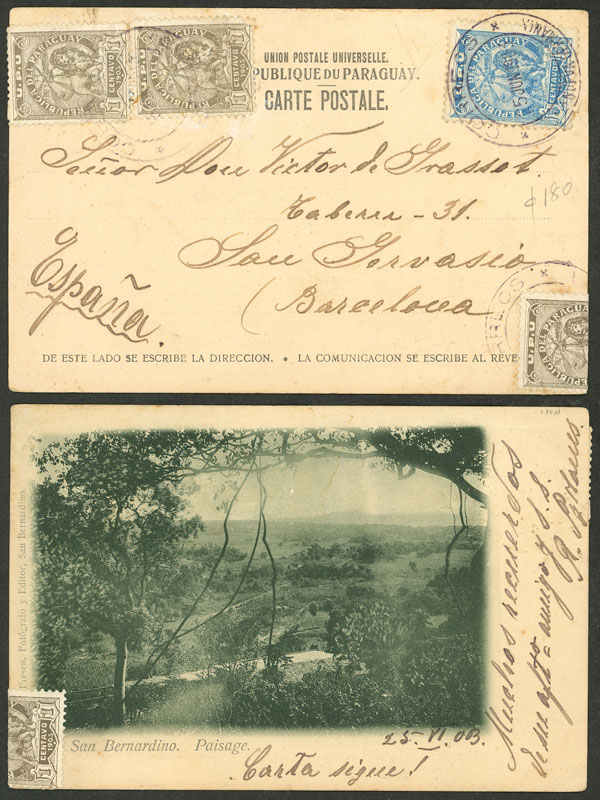 U.P.U
REPUBLICA DEL PARAGUAY
1 CENTAVO 1903
U.P.U
REPUBLICA DEL PARAGUAY
1 CENTAVO 1903
UNION POSTALE UNIVERSELLE.
PUBLIQUE DU PARAGUAY.
CARTE POSTALE.
U.P.U
REPUBLICA DEL PARAGUAY
CENTAVOS
JUN
Señor Don Victor de Grassot.
Taberu - 31.
¢180
San Gervasio
(Barcelona
España.
REPUBLICA DEL PARAGUAY
U.P.U
DE ESTE LADO SE ESCRIBE LA DIRECCION. • LA COMUNICACION SE ESCRIBE AL REVE
Fotógrafo y Editor, San Bernardino
Muchos recuerdos
de su afto amigo y S.S.
1 CENTAVO
San Bernardino. Paisage.
25. VI. 03.
Carta sigue!